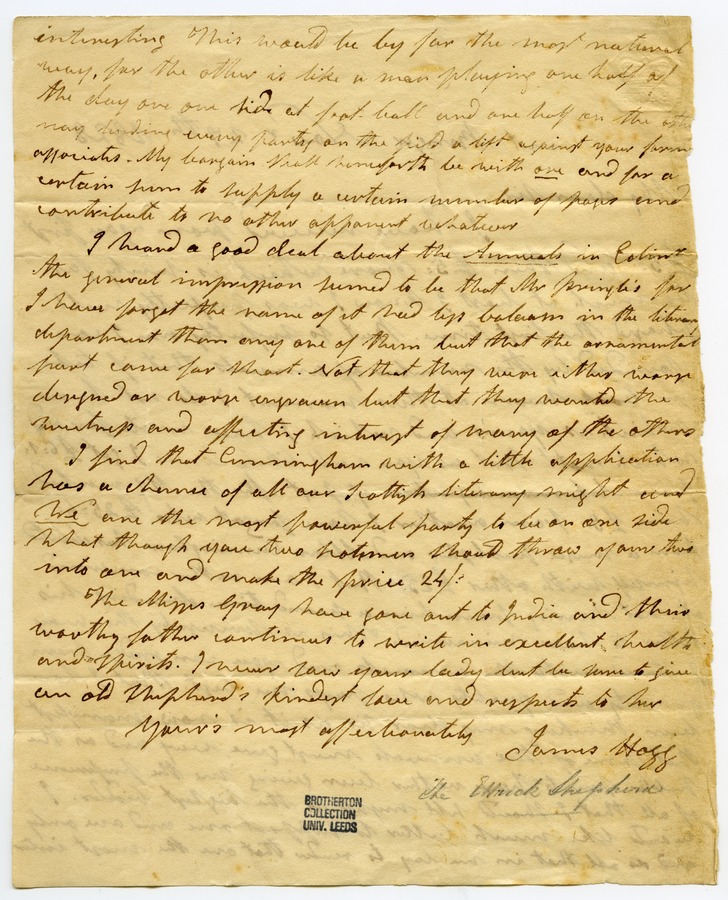 interesting This would be by far the most natural
way, for the other is like a man playing one half of
the day one one side at foot-ball and one half on the other
nay lending every party on the field a lift against your former
associates. My bargain shall henceforth be with one and for a
certain sum to supply a certain number of pages and
contribute to no other apparent whatever
I heard a good deal about the Annuals in Edinr
the general impression seemed to be that Mr Pringle's for
I have forget the name of it had less balaam in the literary
department than any one of them but that the ornamental
part came far short. Not that they were either worse
designed or worse engraven but that they wanted the
neatness and affecting interest of many of the others
I find that Cunningham with a little application
has a chance of all our Scottish literary might and
We are the most powerful party to be on one side
What though you two Scotsmen should throw your two
into one and make the price 24/:
The Misses Gray have gone out to India and their
worthy father continues to write in excellent health
and spirits. I never saw your lady but be sure to give
an old shepherd's kindest love and respects to her
Your's most affectionately
James Hogg
The Ettrick Shepherd
BROTHERTON
COLLECTION
UNIV. LEEDS